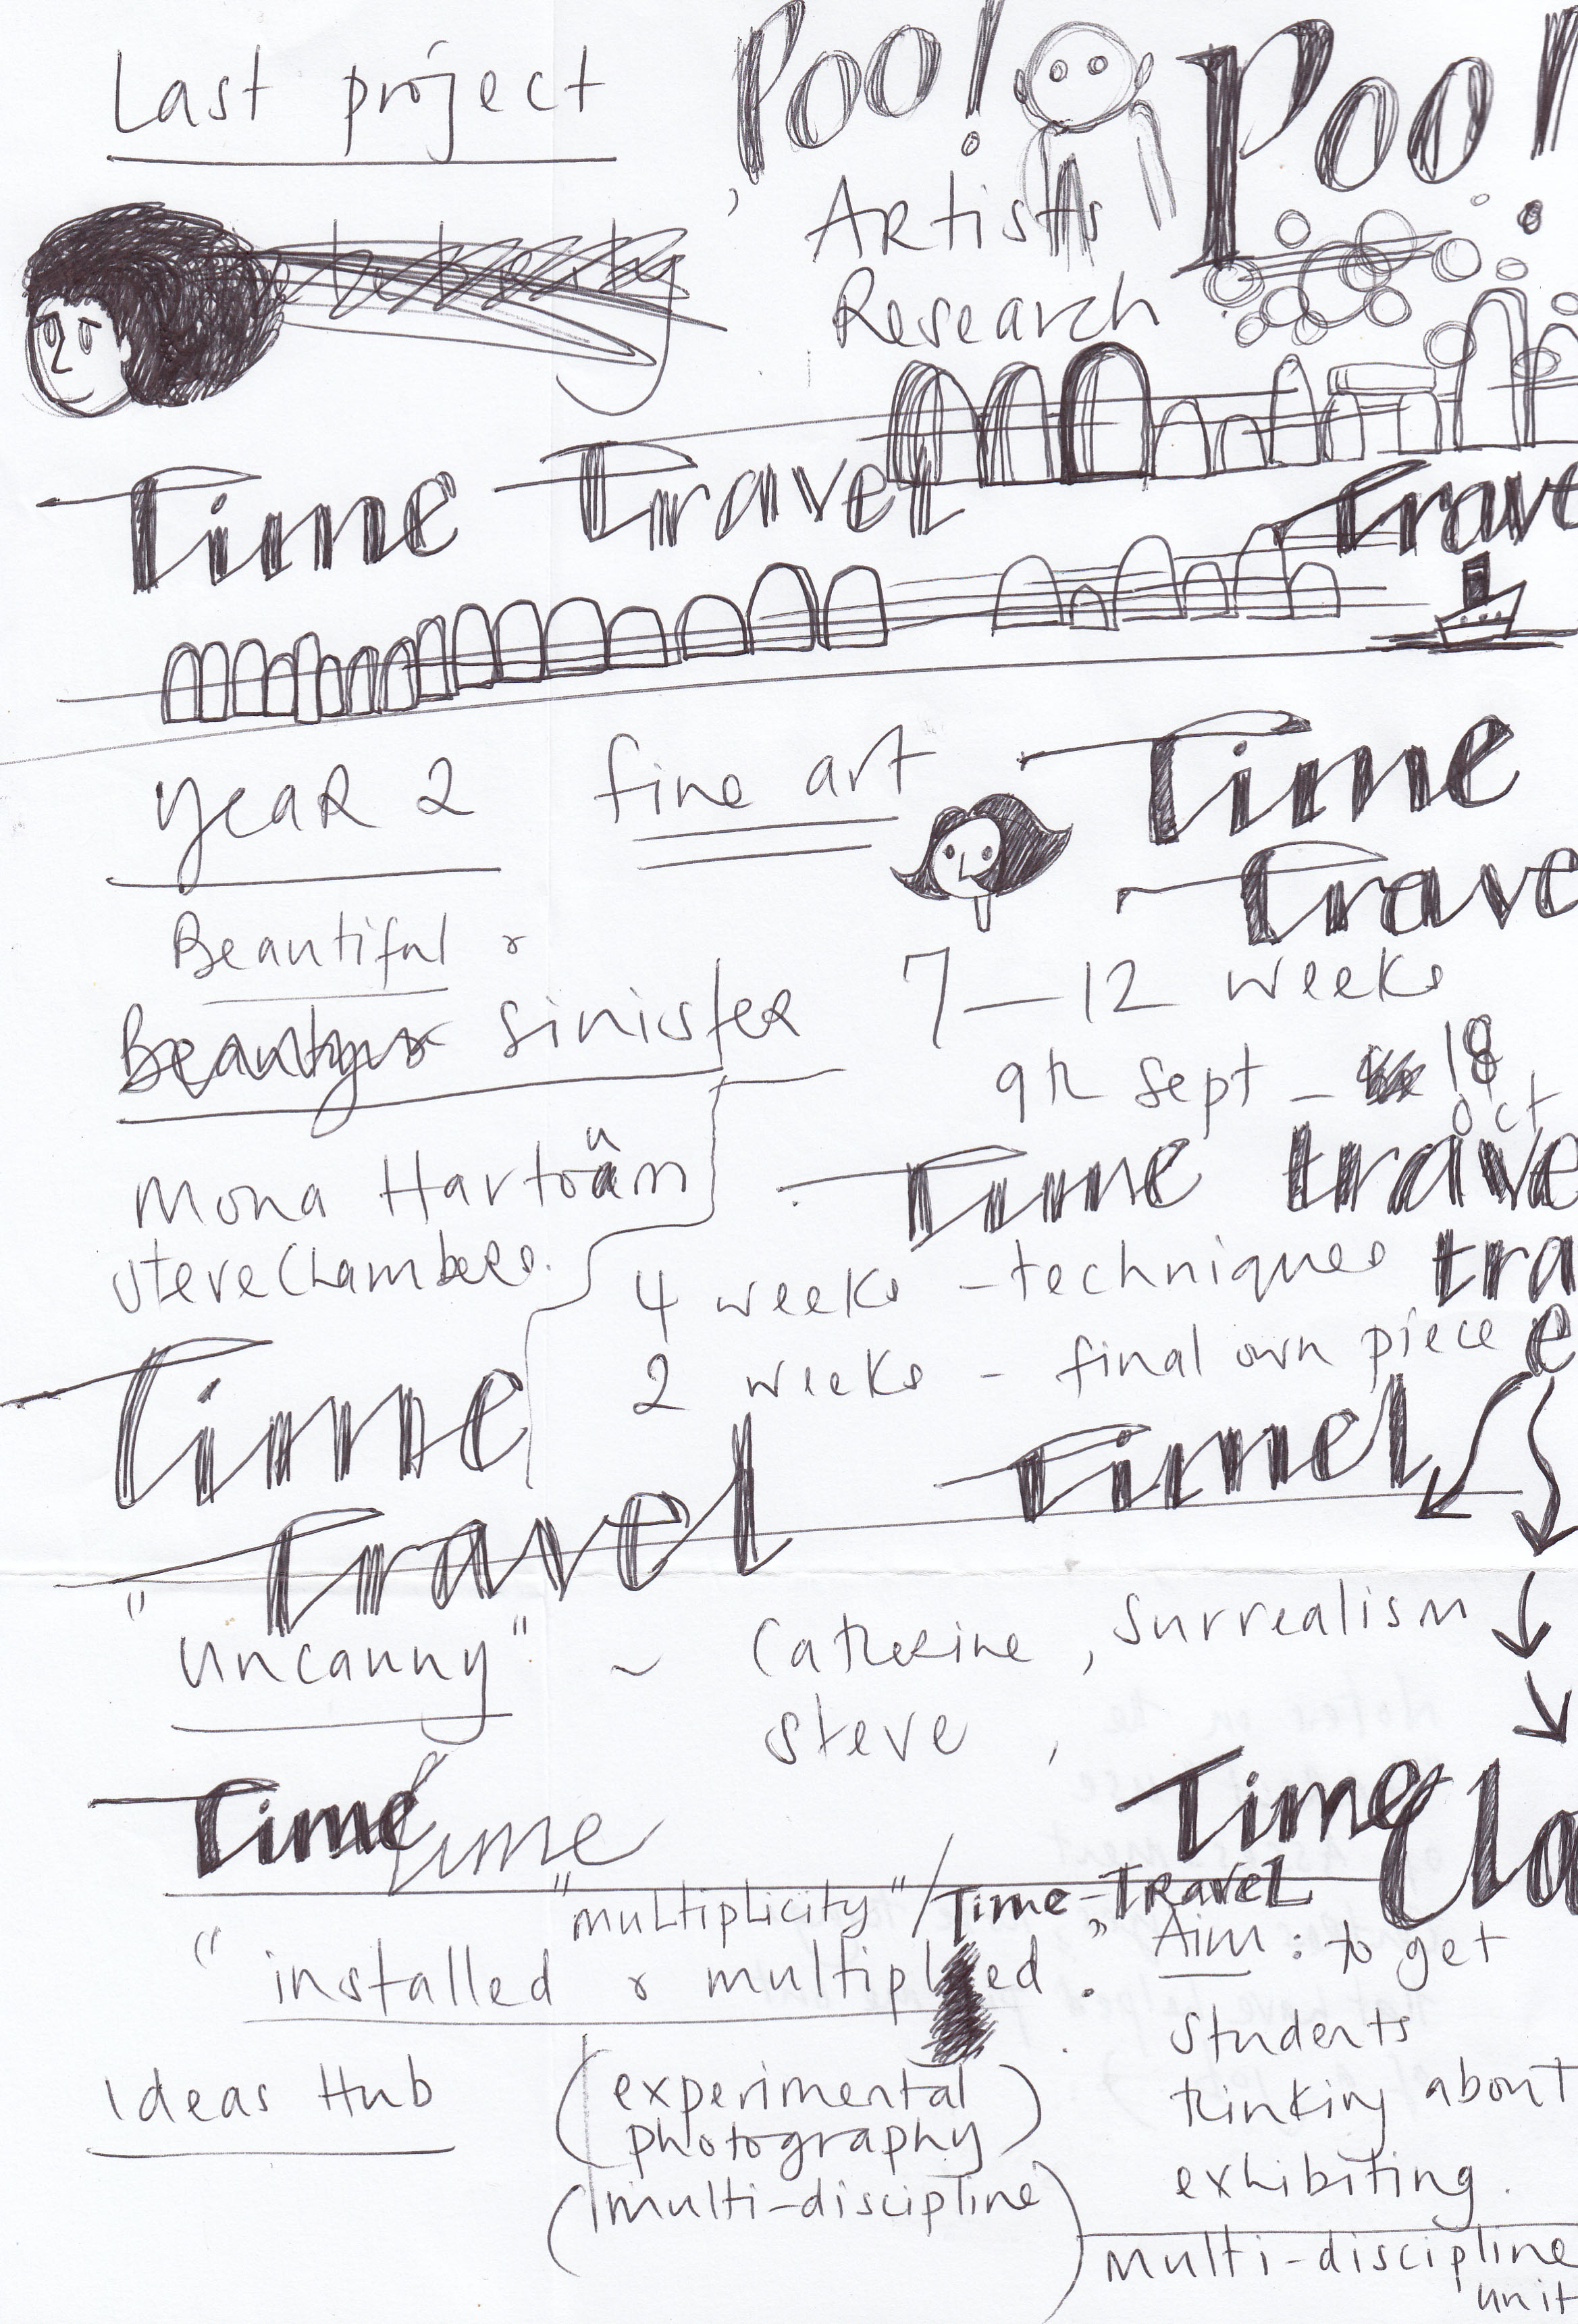 Last project
Poo!
Poo!
Artists
Research
Time Travel
Trave
Year 2 fine art
Time
Trave
Beautiful &
sinister
7—12 weeks
9th Sept – 18
Oct
Mona Hartoum
Steve Chambers.
Time trave
4 weeks – techniques
tra
2 weeks – final own piece
e
Time
Travel
Timel
"Uncanny" ~ Catherine, Surrealism
Steve,
Time
time
Time
Cla
"multiplicity"/Time-Travel
"installed & multiplied."
Aim: to get
students
thinking about
exhibiting.
Ideas Hub
(experimental
photography)
(multi-discipline)
multi-discipline
unit